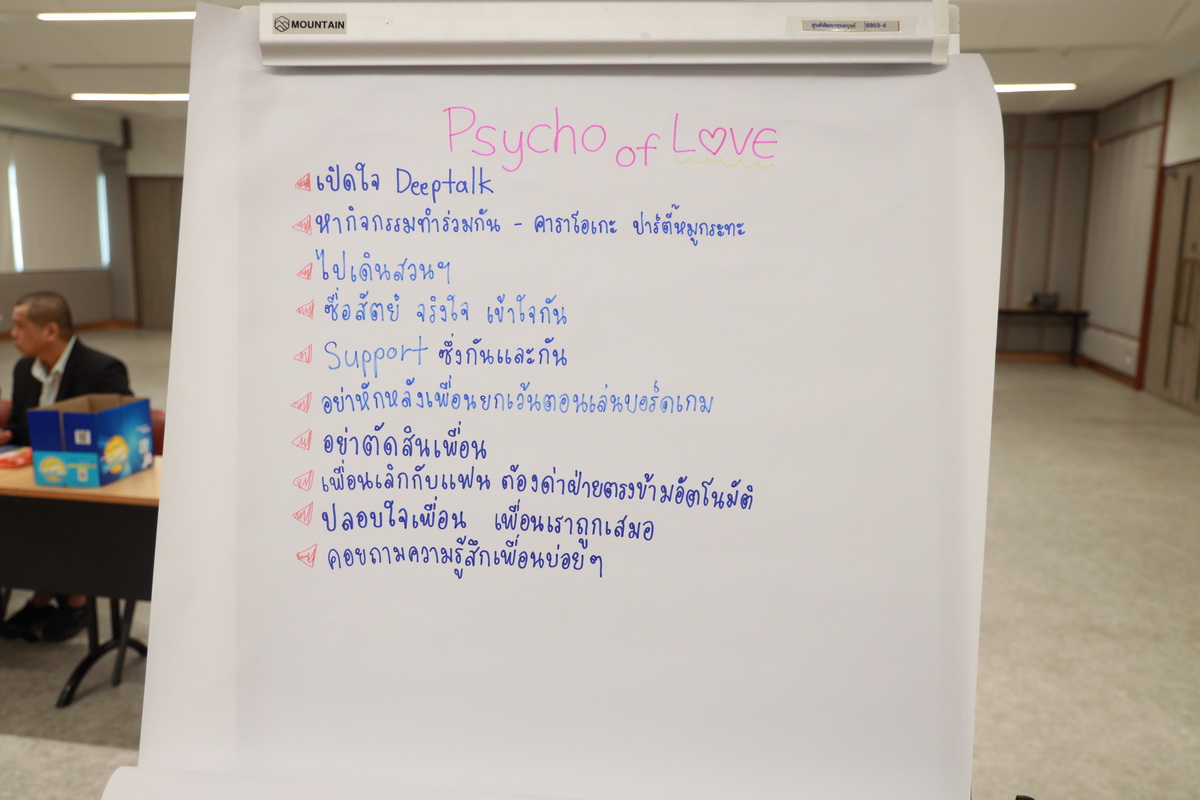 MOUNTAIN
ศูนย์พัฒนาทุนมนุษย์ 6903-A
Psycho of LOVE
เปิดใจ Deeptalk
หากิจกรรมทำร่วมกัน - คาราโอเกะ ปาร์ตี้หมูกระทะ
ไปเดินสวนฯ
ซื่อสัตย์ จริงใจ เข้าใจกัน
Support ซึ่งกันและกัน
อย่าหักหลังเพื่อนยกเว้นตอนเล่นบอร์ดเกม
อย่าตัดสินเพื่อน
เพื่อนเลิกกับแฟน ต้องด่าฝ่ายตรงข้ามอัตโนมัติ
ปลอบใจเพื่อน เพื่อนเราถูกเสมอ
คอยถามความรู้สึกเพื่อนบ่อยๆ